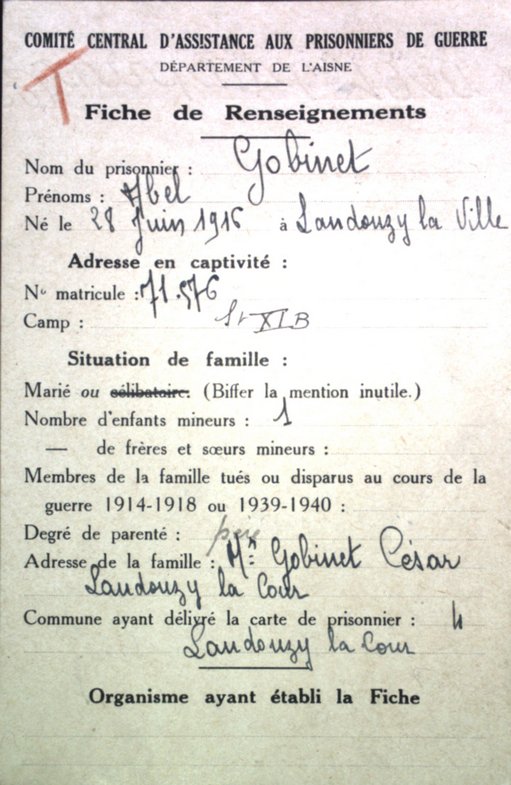 T
COMITÉ CENTRAL D'ASSISTANCE AUX PRISONNIERS DE GUERRE
DÉPARTEMENT DE L'AISNE
Fiche de Renseignements
Nom du prisonnier : Gobinet
Prénoms : Abel
Né le 28 Juin 1916 à Landouzy la Ville
Adresse en captivité :
N° matricule : 71.576
Camp : St XI B
Situation de famille :
Marié ou célibataire. (Biffer la mention inutile.)
Nombre d'enfants mineurs : 1
— de frères et sœurs mineurs :
Membres de la famille tués ou disparus au cours de la
guerre 1914-1918 ou 1939-1940 :
Degré de parenté : père
Adresse de la famille : Mr Gobinet César
Landouzy la Cour
Commune ayant délivré la carte de prisonnier :
Landouzy la Cour
Organisme ayant établi la Fiche